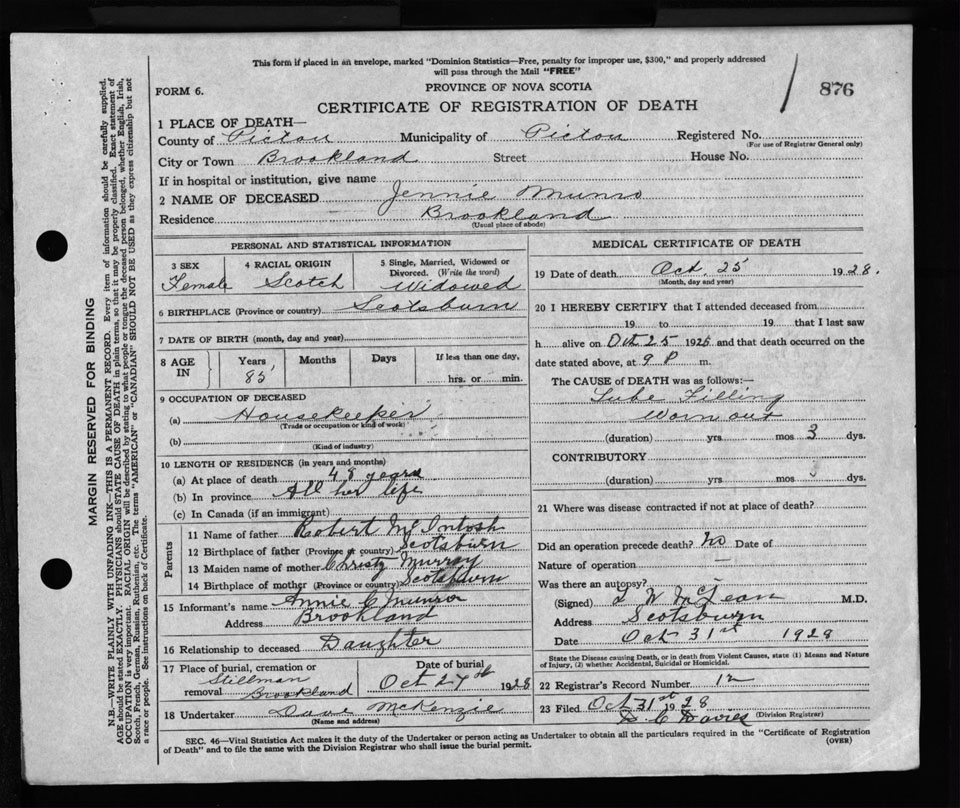 This form if placed in an envelope, marked "Dominion Statistics—Free, penalty for improper use, $300," and properly addressed
will pass through the Mail "FREE"
FORM 6.
PROVINCE OF NOVA SCOTIA
876
CERTIFICATE OF REGISTRATION OF DEATH
1 PLACE OF DEATH—
County of Pictou Municipality of Pictou Registered No.
(For use of Registrar General only)
City or Town Brookland Street House No.
If in hospital or institution, give name
2 NAME OF DECEASED Jennie Munro
Residence Brookland
(Usual place of abode)
PERSONAL AND STATISTICAL INFORMATION
3 SEX 4 RACIAL ORIGIN 5 Single, Married, Widowed or
Divorced. (Write the word)
Female Scotch Widowed
6 BIRTHPLACE (Province or country) Scotsburn
7 DATE OF BIRTH (month, day and year)
8 AGE IN Years Months Days If less than one day,
85 hrs. or min.
9 OCCUPATION OF DECEASED
(a) Housekeeper
(Trade or occupation or kind of work)
(b)
(Kind of industry)
10 LENGTH OF RESIDENCE (in years and months)
(a) At place of death 48 years
(b) In province All her life
(c) In Canada (if an immigrant)
Parents
11 Name of father Robert McIntosh
12 Birthplace of father (Province or country) Scotsburn
13 Maiden name of mother Christy Murray
14 Birthplace of mother (Province or country) Scotsburn
15 Informant's name Annie C Munro
Address Brookland
16 Relationship to deceased Daughter
17 Place of burial, cremation or Date of burial
Stillman
removal Brookland Oct 27th 1928
18 Undertaker Dave McKenzie
(Name and address)
MEDICAL CERTIFICATE OF DEATH
19 Date of death Oct. 25 1928.
(Month, day and year)
20 I HEREBY CERTIFY that I attended deceased from
19 to 19 that I last saw
h alive on Oct 25 1928 and that death occurred on the
date stated above, at 9 P m.
The CAUSE of DEATH was as follows:—
Tube Filling
Worn out
(duration) yrs mos 3 dys.
CONTRIBUTORY
(duration) yrs mos dys.
21 Where was disease contracted if not at place of death?
Did an operation precede death? no Date of
Nature of operation —
Was there an autopsy?
(Signed) McLean M.D.
Address Scotsburn
Date Oct 31st 1928
State the Disease causing Death, or in death from Violent Causes, state (1) Means and Nature
of Injury, (2) whether Accidental, Suicidal or Homicidal.
22 Registrar's Record Number 12
23 Filed Oct 31st 1928
D. C. Davies (Division Registrar)
SEC. 46—Vital Statistics Act makes it duty of the Undertaker or person acting as Undertaker to obtain all the particulars required in the "Certificate of Registration
of Death" and to file the same with the Division Registrar who shall issue the burial permit. (OVER)
MARGIN RESERVED FOR BINDING
N.B.—WRITE PLAINLY WITH UNFADING INK—THIS IS A PERMANENT RECORD. Every item of information should be carefully supplied.
AGE should be stated EXACTLY. PHYSICIANS should STATE CAUSE OF DEATH in plain terms, so that it may be properly classified. Exact statement of
OCCUPATION is very important. RACIAL ORIGIN will be described by stating to what people or tongue the deceased person belonged, whether English, Irish,
Scotch, French, German, Russian, Ruthenian, etc. The terms "AMERICAN" or "CANADIAN" SHOULD NOT BE USED as they express citizenship but not
a race or people. See instructions on back of Certificate.